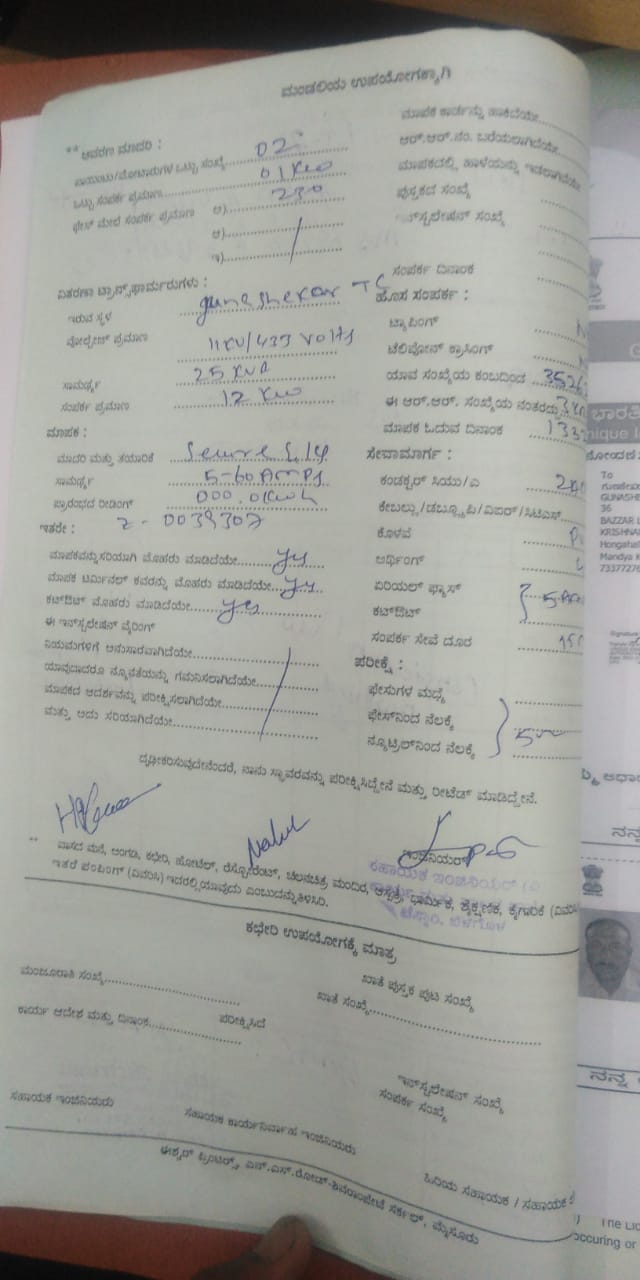 ಮಂಡಲಿಯ ಉಪಯೋಗಕ್ಕಾಗಿ
** ಆವರಣ ಮಾದರಿ :
ಪಾಯಿಂಟು/ಮೋಟಾರುಗಳ ಒಟ್ಟು ಸಂಖ್ಯೆ 02
ಒಟ್ಟು ಸಂಪರ್ಕ ಪ್ರಮಾಣ 01 KW
ಫೇಸ್ ಮೇಲೆ ಸಂಪರ್ಕ ಪ್ರಮಾಣ ಅ) 230
ಆ)
ಇ)
ವಿತರಣಾ ಟ್ರಾನ್ಸ್‌ಫಾರ್ಮರುಗಳು :
ಇರುವ ಸ್ಥಳ guneshekar TC
ವೋಲ್ಟೇಜ್ ಪ್ರಮಾಣ 11KV/433 Volts
ಸಾಮರ್ಥ್ಯ 25 KVA
ಸಂಪರ್ಕ ಪ್ರಮಾಣ 12 KW
ಮಾಪಕ :
ಮಾದರಿ ಮತ್ತು ತಯಾರಿಕೆ Secure
ಸಾಮರ್ಥ್ಯ 5-60 AMPS
ಪ್ರಾರಂಭದ ರೀಡಿಂಗ್ 000.0KWh
ಇತರೇ : 2-0039307
ಮಾಪಕವನ್ನು ಸರಿಯಾಗಿ ಮೊಹರು ಮಾಡಿದೆಯೇ yes
ಮಾಪಕ ಟರ್ಮಿನಲ್ ಕವರನ್ನು ಮೊಹರು ಮಾಡಿದೆಯೇ yes
ಕಟ್‌ಔಟ್ ಮೊಹರು ಮಾಡಿದೆಯೇ yes
ಈ ಇನ್‌ಸ್ಟಲೇಷನ್ ವೈರಿಂಗ್
ನಿಯಮಗಳಿಗೆ ಅನುಸಾರವಾಗಿದೆಯೇ
ಯಾವುದಾದರೂ ನ್ಯೂನತೆಯನ್ನು ಗಮನಿಸಲಾಗಿದೆಯೇ
ಮಾಪಕದ ಆದರ್ಶವನ್ನು ಪರೀಕ್ಷಿಸಲಾಗಿದೆಯೇ
ಮತ್ತು ಅದು ಸರಿಯಾಗಿದೆಯೇ
ಮಾಪಕ ಕಾರ್ಡನ್ನು ಹಾಕಿದೆಯೇ
ಆರ್.ಆರ್.ನಂ. ಬರೆಯಲಾಗಿದೆಯೇ
ಮಾಪಕದಲ್ಲಿ ಹಾಳೆಯನ್ನು ಇಡಲಾಗಿದೆಯೇ
ಪುಸ್ತಕದ ಸಂಖ್ಯೆ
ಇನ್‌ಸ್ಟಲೇಷನ್ ಸಂಖ್ಯೆ
ಸಂಪರ್ಕ ದಿನಾಂಕ
ಹೊಸ ಸಂಪರ್ಕ :
ಟ್ಯಾಪಿಂಗ್
ಟೆಲಿಫೋನ್ ಕ್ರಾಸಿಂಗ್
ಯಾವ ಸಂಖ್ಯೆಯ ಕಂಬದಿಂದ
ಈ ಆರ್.ಆರ್. ಸಂಖ್ಯೆಯ ನಂತರದ್ದು
ಮಾಪಕ ಓದುವ ದಿನಾಂಕ
ಸೇವಾಮಾರ್ಗ :
ಕಂಡಕ್ಟರ್ ಸಿಯು/ಎ
ಕೇಬಲ್ಲು/ಡಬ್ಲ್ಯೂಪಿ/ವಿಐಆರ್/ಸಿಟಿಎಸ್
ಕೊಳವೆ
ಅರ್ಥಿಂಗ್
ಏರಿಯಲ್ ಫ್ಯೂಸ್
ಕಟ್‌ಔಟ್
ಸಂಪರ್ಕ ಸೇವೆ ದೂರ
ಪರೀಕ್ಷೆ :
ಫೇಸುಗಳ ಮಧ್ಯೆ
ಫೇಸ್‌ನಿಂದ ನೆಲಕ್ಕೆ
ನ್ಯೂಟ್ರಲ್‌ನಿಂದ ನೆಲಕ್ಕೆ
ದೃಢೀಕರಿಸುವುದೇನೆಂದರೆ, ನಾನು ಸ್ಥಾವರವನ್ನು ಪರೀಕ್ಷಿಸಿದ್ದೇನೆ ಮತ್ತು ರೀಟೆಡ್ ಮಾಡಿದ್ದೇನೆ.
ಇಂಜಿನಿಯರ್
ಸಹಾಯಕ ಇಂಜಿನಿಯರ್
** ವಾಸದ ಮನೆ, ಅಂಗಡಿ, ಕಛೇರಿ, ಹೋಟೆಲ್, ರೆಸ್ಟೋರೆಂಟ್, ಚಲನಚಿತ್ರ ಮಂದಿರ, ಆಸ್ಪತ್ರೆ, ಧಾರ್ಮಿಕ, ಶೈಕ್ಷಣಿಕ, ಕೈಗಾರಿಕೆ (ವಿವರಿಸಿ)
ಇತರೆ ಪಂಪಿಂಗ್ (ವಿವರಿಸಿ) ಇದರಲ್ಲಿ ಯಾವುದು ಎಂಬುದನ್ನು ತಿಳಿಸಿರಿ.
ಕಛೇರಿ ಉಪಯೋಗಕ್ಕೆ ಮಾತ್ರ
ಮಂಜೂರಾತಿ ಸಂಖ್ಯೆ
ಖಾತೆ ಪುಸ್ತಕ ಪುಟ ಸಂಖ್ಯೆ
ಕಾರ್ಯ ಆದೇಶ ಮತ್ತು ದಿನಾಂಕ
ಪರೀಕ್ಷಿಸಿದೆ
ಖಾತೆ ಸಂಖ್ಯೆ
ಇನ್‌ಸ್ಟಲೇಷನ್ ಸಂಖ್ಯೆ
ಸಂಪರ್ಕ ಸಂಖ್ಯೆ
ಸಹಾಯಕ ಇಂಜಿನಿಯರು
ಸಹಾಯಕ ಕಾರ್ಯನಿರ್ವಾಹ ಇಂಜಿನಿಯರು
ಹಿರಿಯ ಸಹಾಯಕ / ಸಹಾಯಕ
ಈಶ್ವರ್ ಪ್ರಿಂಟರ್ಸ್, ಎನ್.ಎಸ್.ರೋಡ್-ಶಿವರಾಂಪೇಟೆ ಸರ್ಕಲ್, ಮೈಸೂರು
To
36
Mandya